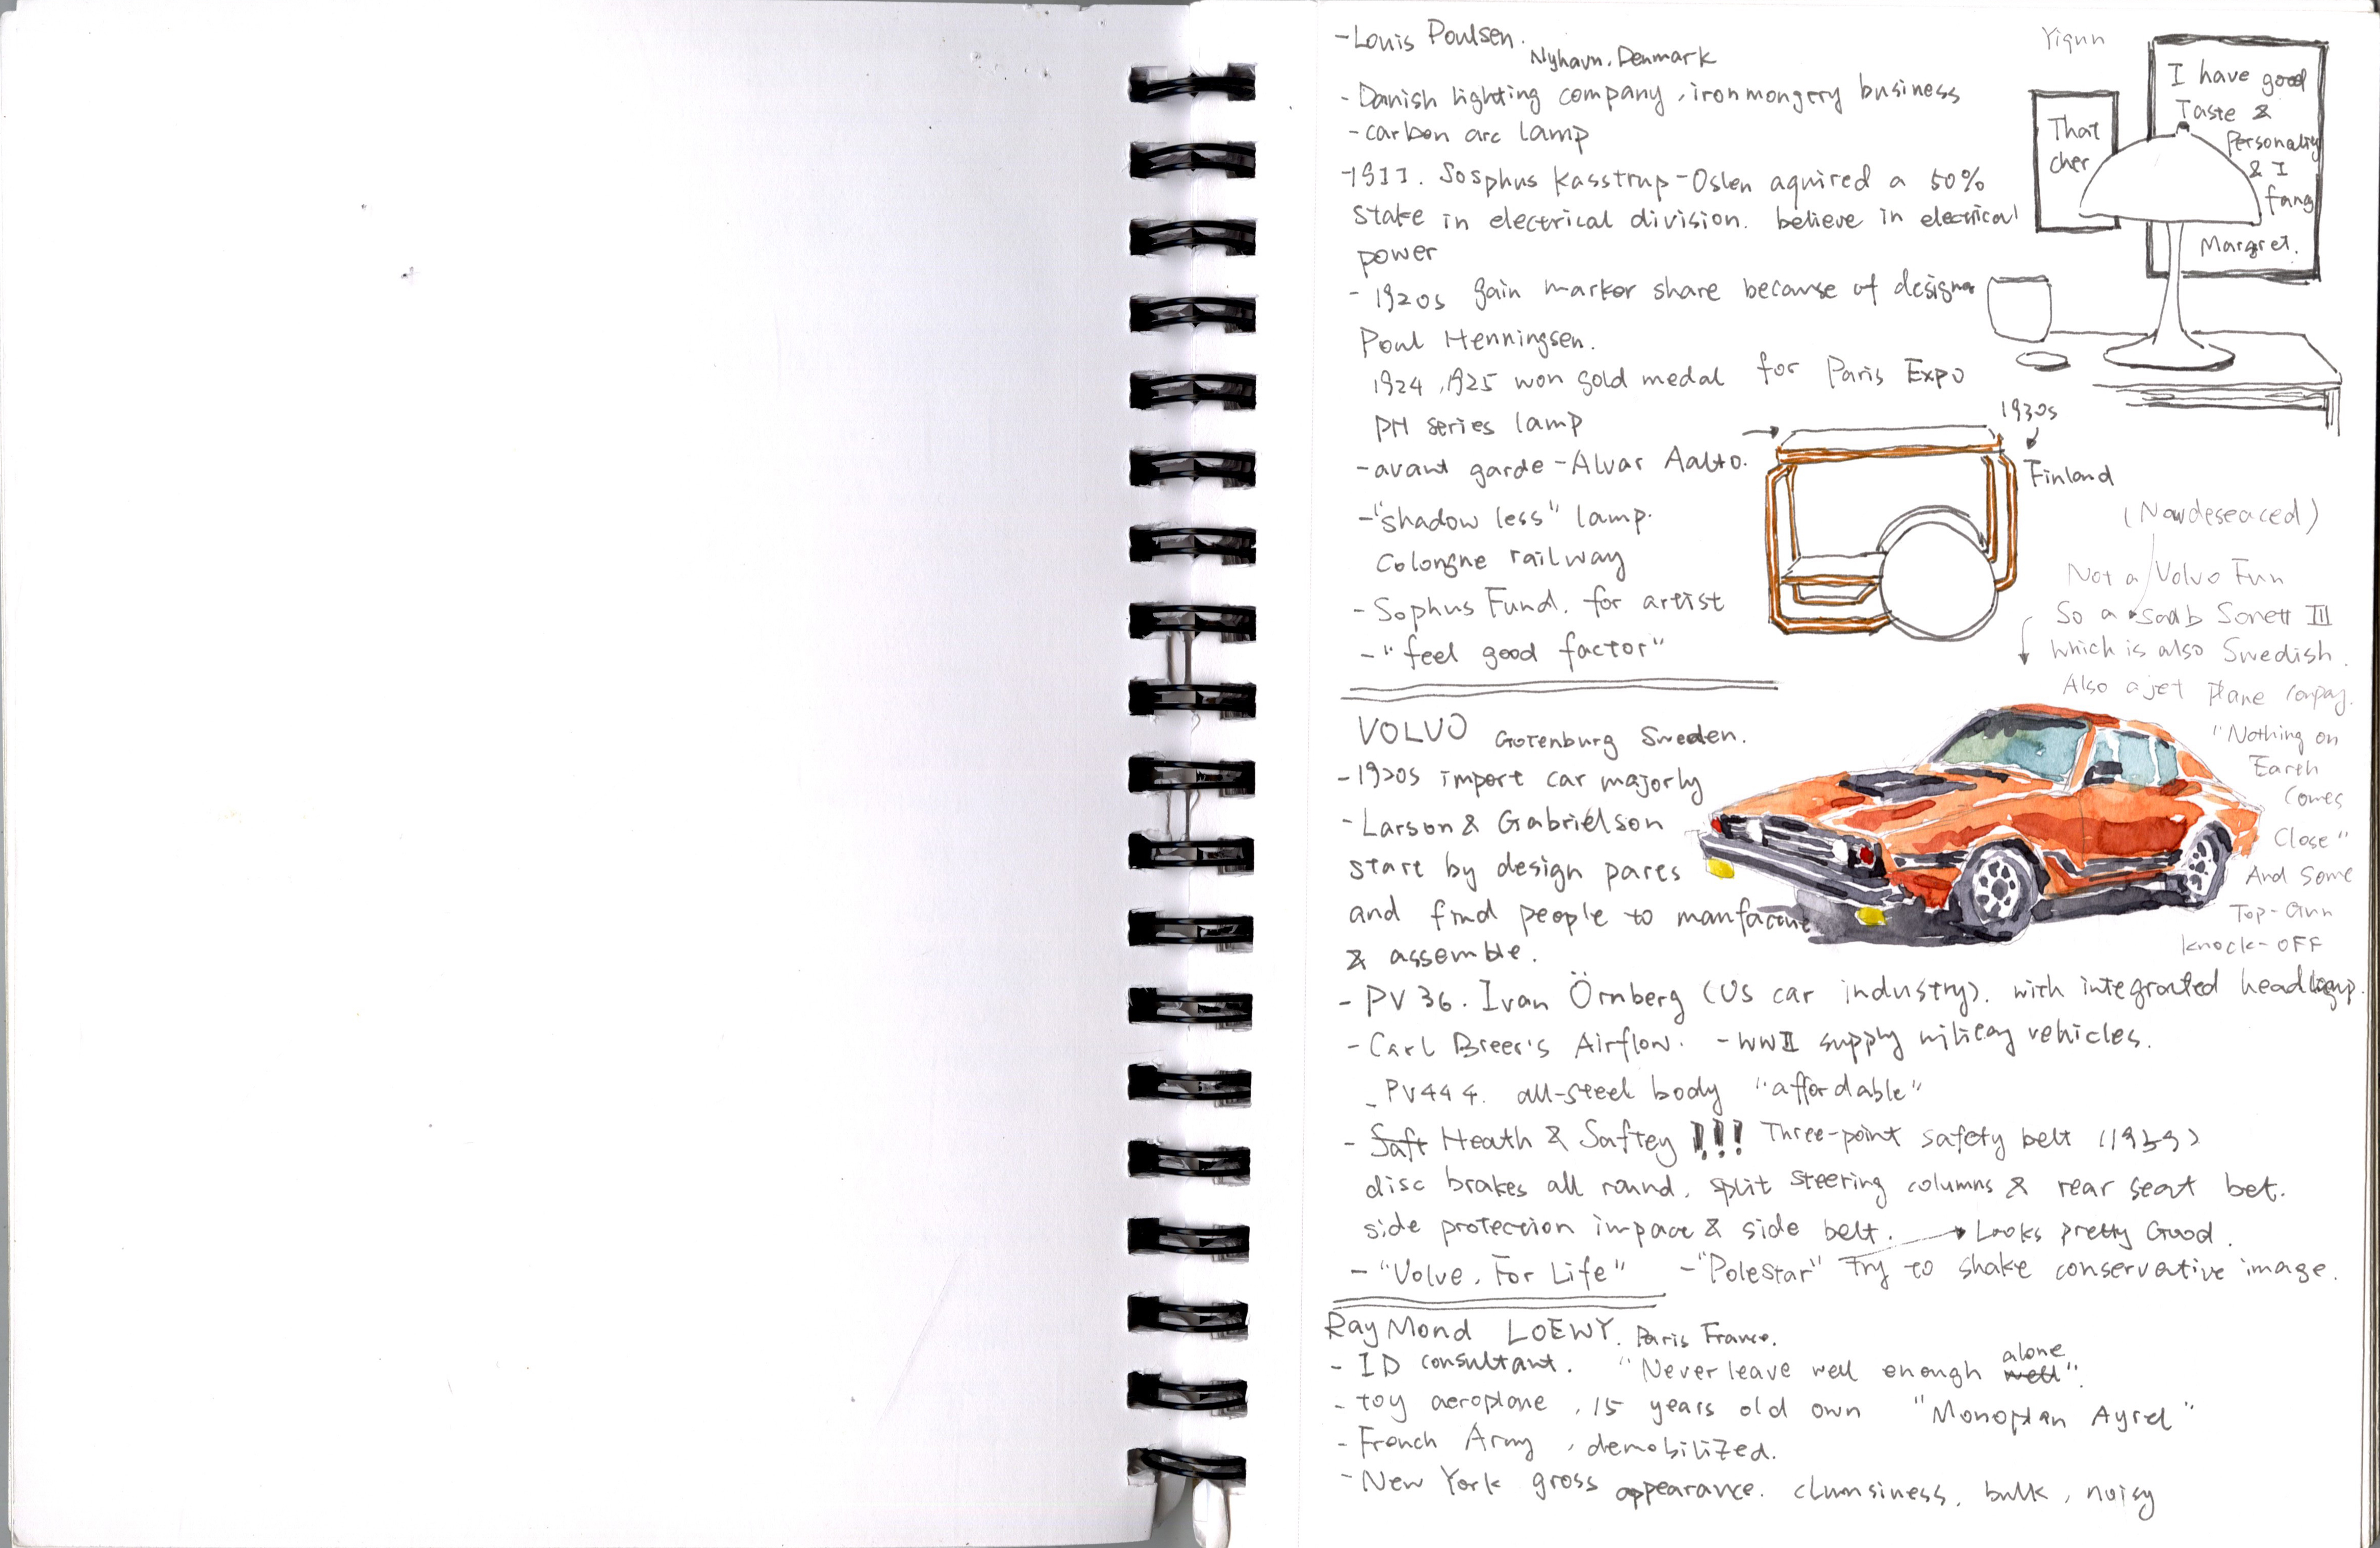 -Louis Poulsen.
Nyhavn. Denmark
- Danish lighting company, iron mongery business
- carbon arc lamp
-1911. Sosphus Kasstrup-Oslen aquired a 50%
stake in electrical division. believe in electrical
power
- 1920s gain marker share because of designer
Poul Henningsen.
1924, 1925 won gold medal for Paris Expo
PH series lamp
-avant garde - Alvar Aalto.
-"shadow less" lamp.
Colongne railway
- Sophus Fund. for artist
- "feel good factor"
Yiqun
That
cher
I have good
Taste &
Personality
& I
fang
Margret.
1930s
Finland
(Now deseaced)
Not a Volvo Fun
So a saab Sonett III
which is also Swedish.
Also a jet plane company.
"Nothing on
Earth
Comes
Close"
And Some
Top-Gun
knock-OFF
VOLVO Gotenburg Sweden.
- 1920s import car majorly
- Larson & Gabrielson
start by design parts
and find people to manfacture
& assemble.
- PV 36. Ivan Örnberg (US car industry). with integrated headlamp.
- Carl Breer's Airflow. - WWII supply military vehicles.
- PV444. all-steel body "affordable"
- Saft Heath & Saftey !!! Three-point safety belt (1959)
disc brakes all round. split steering columns & rear seat bet.
side protection impact & side belt. Looks pretty Good.
- "Volve. For Life" - "Polestar" Try to shake conservative image.
RayMond LOEWY. Paris France.
- ID consultant. "Never leave well enough well alone".
- toy aeroplane, 15 years old own "Monoplan Ayrel"
- French Army, demobilized.
- New York gross appearance. clumsiness, bulk, noisy